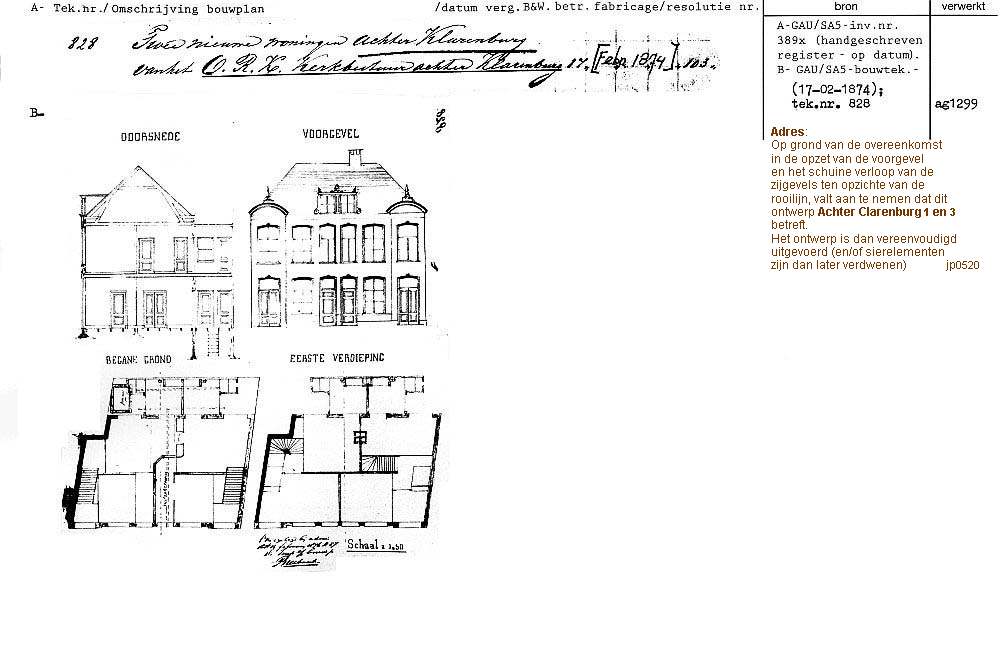 A- Tek.nr./ Omschrijving bouwplan /datum verg.B&W. betr. fabricage/resolutie nr.
bron
verwerkt
828 Twee nieuwe woningen achter Klarenburg
van het O. R. K. Kerkbestuur achter Klarenburg 17. [Febr. 1874]. 103.
A-GAU/SA5-inv.nr.
389x (handgeschreven
register - op datum).
B- GAU/SA5-bouwtek.-
(17-02-1874);
tek.nr. 828
ag1299
Adres:
Op grond van de overeenkomst
in de opzet van de voorgevel
en het schuine verloop van de
zijgevels ten opzichte van de
rooilijn, valt aan te nemen dat dit
ontwerp Achter Clarenburg 1 en 3
betreft.
Het ontwerp is dan vereenvoudigd
uitgevoerd (en/of sierelementen
zijn dan later verdwenen) jp0520
B-
828
DOORSNEDE
VOORGEVEL
BEGANE GROND
EERSTE VERDIEPING
Schaal à 1.50